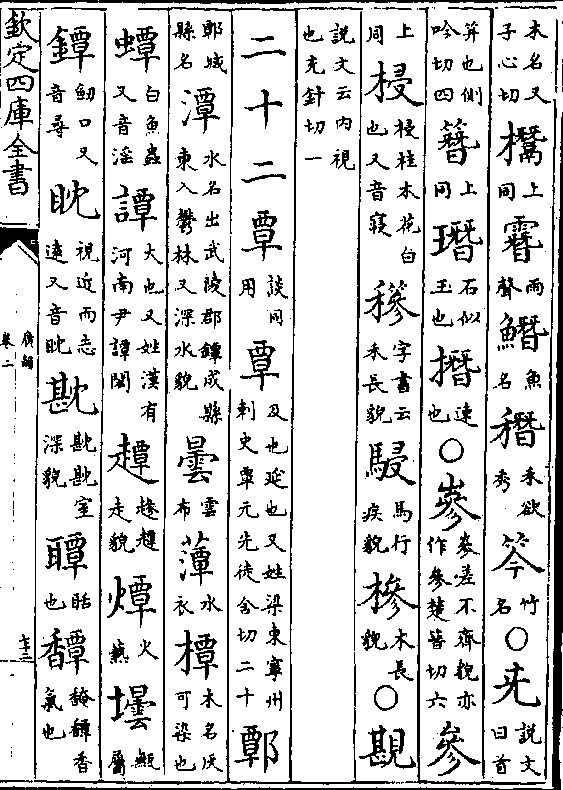 木名又子心切 㰼 上同 䨙 雨聲 鱏 魚名 䅾 禾欲秀 笒 竹名 ○ 兂 說文曰首
笄也側吟切四 簪 上同 㻸 石似玉也 撍 速也 ○ 嵾 嵾差不齊貌亦作參楚簪切六 參
上同 梫 梫桂木花白也又音寢 穇 字書云禾長貌 駸 馬行疾貌 槮 木長貌 ○ 覘
說文云內視也充針切一
二十二覃 談同用 覃 及也延也又姓梁東寧州刺史覃元先徒含切二十
鄭城縣名 潭 水名出武陵郡鐔成縣東入鬱林又深水貌 曇 雲布 藫 水衣 橝 木名灰可染也
蟫 白魚蟲又音淫 譚 大也又姓漢有河南尹譚閎 走貌 燂 火爇 壜 甒屬
鐔 劒口又音尋 眈 視近而志遠又音眈 室深貌 也 香氣也
欽定四庫全書
廣韻
卷二
七十二